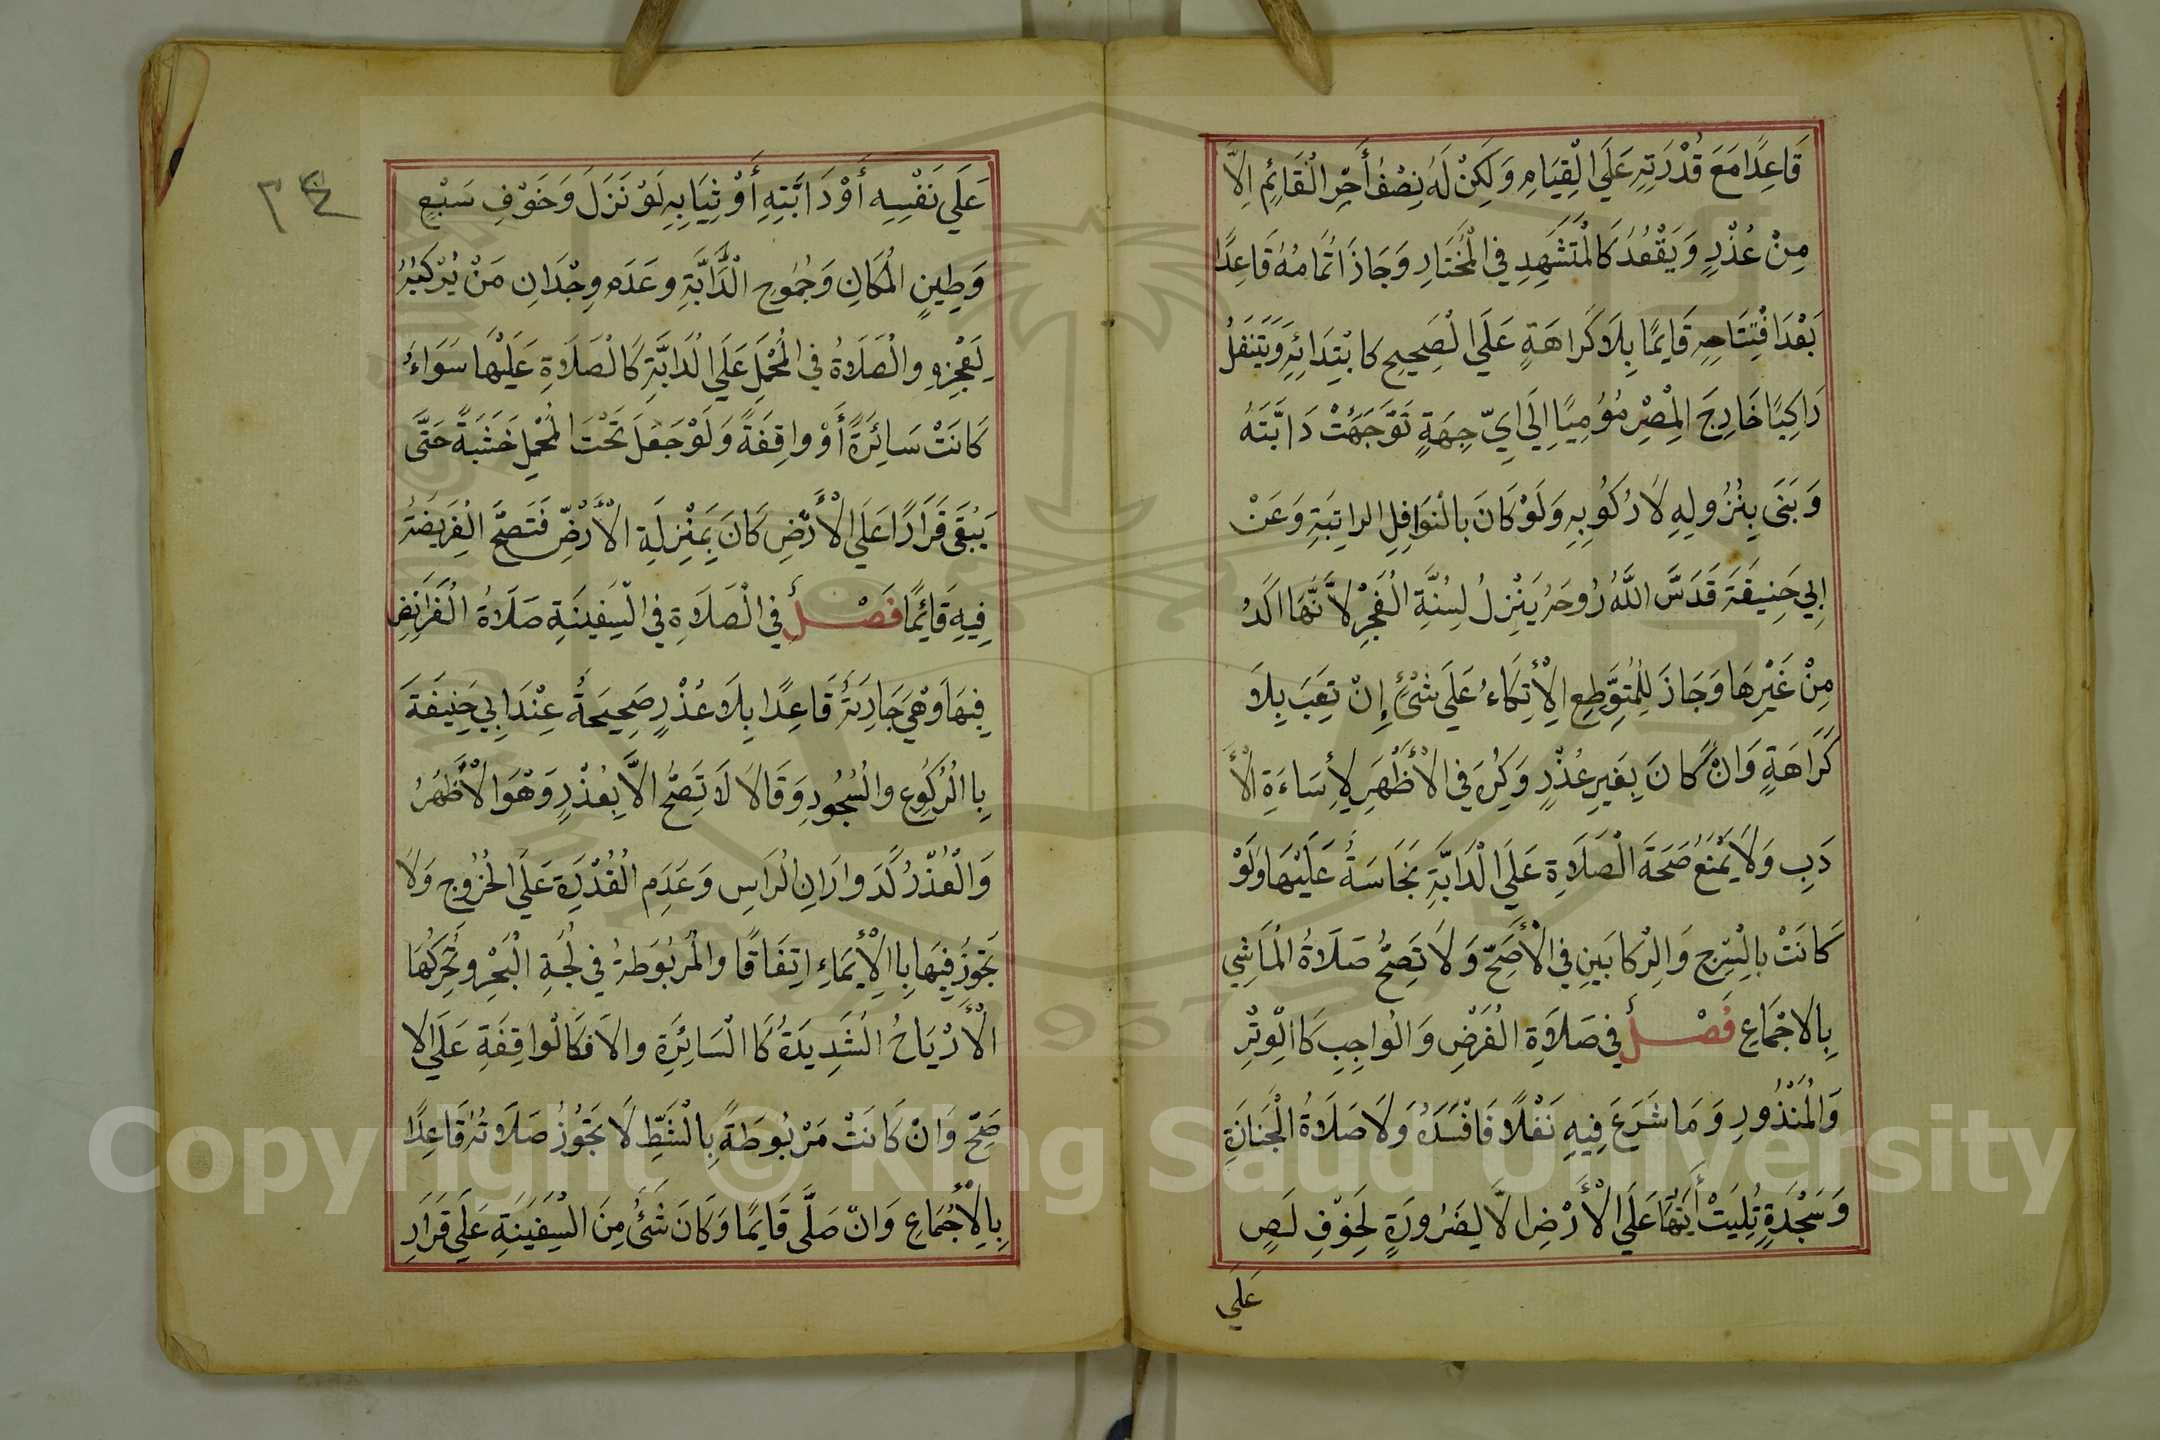 قَاعِدًا مَعَ قُدْرَتِهِ عَلَي الْقِيَامِ وَلَكِنْ لَهُ نِصْفُ أَجْرِ الْقَائِمِ اِلَّا
مِنْ عُذْرٍ وَيَقْعُدُ كَالْمُتَشَهِدِ فِي الْمُخْتَارِ وَجَازَ اتْمَامُهُ قَاعِدًا
بَعْدَ افْتِتَاحِهِ قَايِمًا بِلَا كَرَاهَةٍ عَلَي الْصَحِيحِ كابْتِدَائِهِ وَيَتَنَفَلُ
رَاكِبًا خَارِجَ الْمِصْرِ مُوُمِيًا اِلَي ايِّ جِهَةٍ تَوَّجَهَتْ دَابَّتَهُ
وَبَنَي بِنُزُولِهِ لَا رُكُوُبِهِ وَلَوْ كَانَ بالْنَوَافِلِ الراتِبَةِ وَعَنْ
ابِي حَنِيفَةَ قَدَسَّ اللَّهُ رُوحَهُ يَنْزِلُ لِسُنَّةِ الْفَجْرِ لاَنَّهَا اكَدُ
مِنْ غَيْرِهَا وَجَازَ لِلْمُتِوَّطِعِ الْاِتِكَاءُ عَلَي شْئٍ إِنْ تَعِبَ بِلَا
كَرَاهَةٍ وَانْ كَانَ بِغَيرِ عُذْرٍ وَكِرُهَ فِي الْأَظْهَرِ لِأسَاءَةِ الْأَ
دَبِ وَلَا يَمْنَعُ صَحَةَ الْصَلَاةِ عَلَي الْدَابَّةِ نَجَاسَةُ عَلَيْهَا وَلَوْ
كَانَتْ بالْسَرْجِ وَالرْكابَينِ فِي الْأَصَحِّ وَلَا تَصِحُّ صَلَاةُ الْمَاشِي
بِالاجْمَاعِ فَصْلٌ فِي صَلَاةِ الْفَرْضِ وَالْواجِبِ كَاالْوِتْرِ
وَالْمَنْذُورِ وَمَا شَرَعَ فِيهِ نَفْلًا فَافْسَدَهُ وَلَا صَلَاةُ الْجَنَازَةِ
وَسَجْدَةٍ تُلِيَتْ أيَتُهَا عَلَي الْأَرْضِ الَّا لِضَرُورَةٍ لِخَوْفِ لَصٍ
عَلَي
٣٤
عَلَي نَفْسِهِ أَوْ دَابَّتِهِ أَوْ ثِيَابِهِ لَوْ نَزَلَ وَخَوْفِ سَبْعٍ
وَطِينٍ الْمَكَانِ وَجُمُوحِ الْدَّابَّةِ وعَدَمِ وِجْدَانِ مَنْ يُرْكِبُهُ
لِعَجْزِهِ والْصَلَاةُ فِي الْمَحْمَلِ عَلَي الْدَابَّةِ كَالْصَلَاةِ عَلَيْهَا سَوَاءٌ
كَانَتْ سَائِرَةً أَوْ واقِفَةً وَلَوْ جَعَلَ تَحْتَ الْمَحْمِلِ خَشَبَةً حَتَّي
يَبْقَي قَرَارًا عَلَي الْأَرْضِ كَانَ بَمَنْزِلَةِ الْأَرْضِ فَتَصِحَّ الْفَرِيضَةُ
فِيهِ قَائِمًا فَصْلٌ فِي الْصَلَاةِ فِي الْسَفِينَةِ صَلَاةُ الْفَرَائِضِ
فِيهَا وَهْيَ جَارِيَةُ قَاعِدًا بِلَا عُذْرٍ صَحِيحَةُ عِنْدَ ابِي حَنِيفَةَ
بِاالْرُكُوعِ والْسُجُودِ وَقَالَا لَا تَصِحُّ الاَّ بِعُذْرٍ وَهْوَ الْأَظْهَرُ
وَالْعُذْرُ كَدَوارَانِ الْرَاسِ وَعَدَمِ الْقُدْرَةِ عَلَي الْخُرُوجِ وَلَا
تَجْوزُ فِيهَا بِاالْاِيمَاءِ اتِفَاقًا والْمَرْبُوَطَةُ فِي لُجَةِ الْبَحْرِ وتُحَرِكُهَا
الْأَرْيَاحُ الْشَدِيدَةُ كَاالْسَائِرَةِ والَا فَكَالْواقِفَةِ عَلَي الا
صَحِّ وَانْ كَانَتْ مَرْبُوطَةً بِالْشَطِّ لَا تَجُوُزُ صَلَاتُهُ قَاعِدًا
بِالِاْجْمَاعِ وَانْ صَلَّي قَايِمًا وَكَانَ شَئُ مِنَ السَفِينَةِ عَلَي قَرَارِ
Copyright © King Saud University
1957